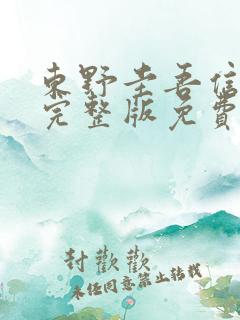 東野圭吾信
完整版免費
封歡歡
未经同意禁止转载